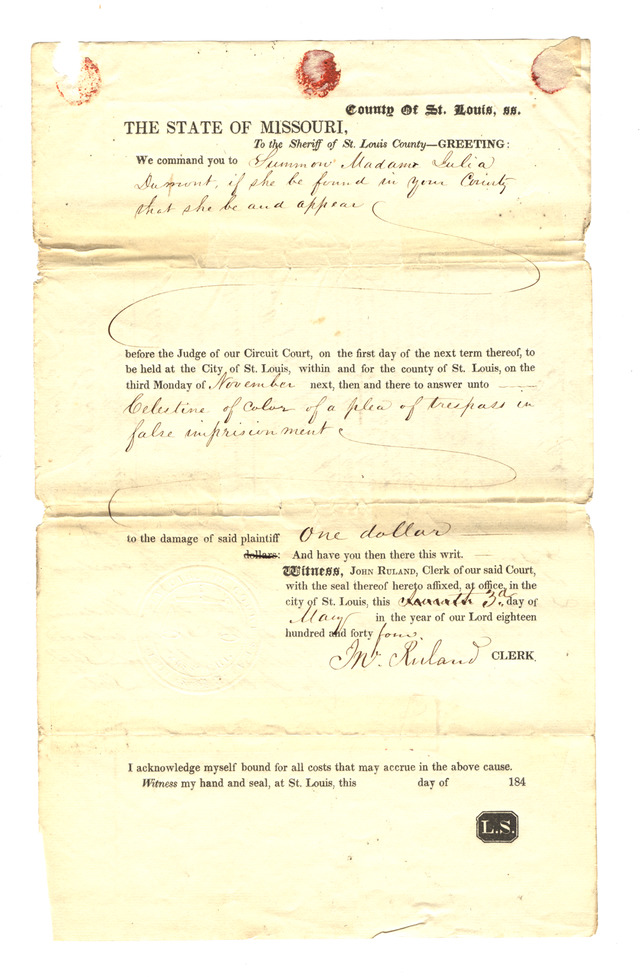 County Of St. Louis, ss.
THE STATE OF MISSOURI,
To the Sheriff of St. Louis County—GREETING:
We command you to Summon Madame Julia
Dumont, if she be found in your County
that she be and appear
before the Judge of our Circuit Court, on the first day of the next term thereof, to
be held at the City of St. Louis, within and for the county of St. Louis, on the
third Monday of November next, then and there to answer unto
Celestine of color of a plea of trespass in
false imprisionment
to the damage of said plaintiff One dollar
dollars: And have you then there this writ.
Witness, JOHN RULAND, Clerk of our said Court,
with the seal thereof hereto affixed, at office, in the
city of St. Louis, this 3d day of
May in the year of our Lord eighteen
hundred and forty four.
Jno. Ruland CLERK.
I acknowledge myself bound for all costs that may accrue in the above cause.
Witness my hand and seal, at St. Louis, this day of 184
L.S.